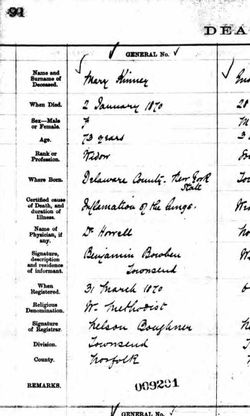 91
DEA
GENERAL No.
Name and Surname of Deceased. Mary Kinney
When Died. 2 January 1870
Sex—Male or Female. F
Age. 73 years
Rank or Profession. Widow
Where Born. Delaware County. New York State
Certified cause of Death, and duration of Illness. Inflamation of the Lungs.
Name of Physician, if any. Dr Horrell
Signature, description and residence of informant. Benjamin Bowlen Townsend
When Registered. 31 March 1870
Religious Denomination. W. Methodist
Signature of Registrar Nelson Boughner
Division. Townsend
County. Norfolk
REMARKS. 009291
GENERAL No.